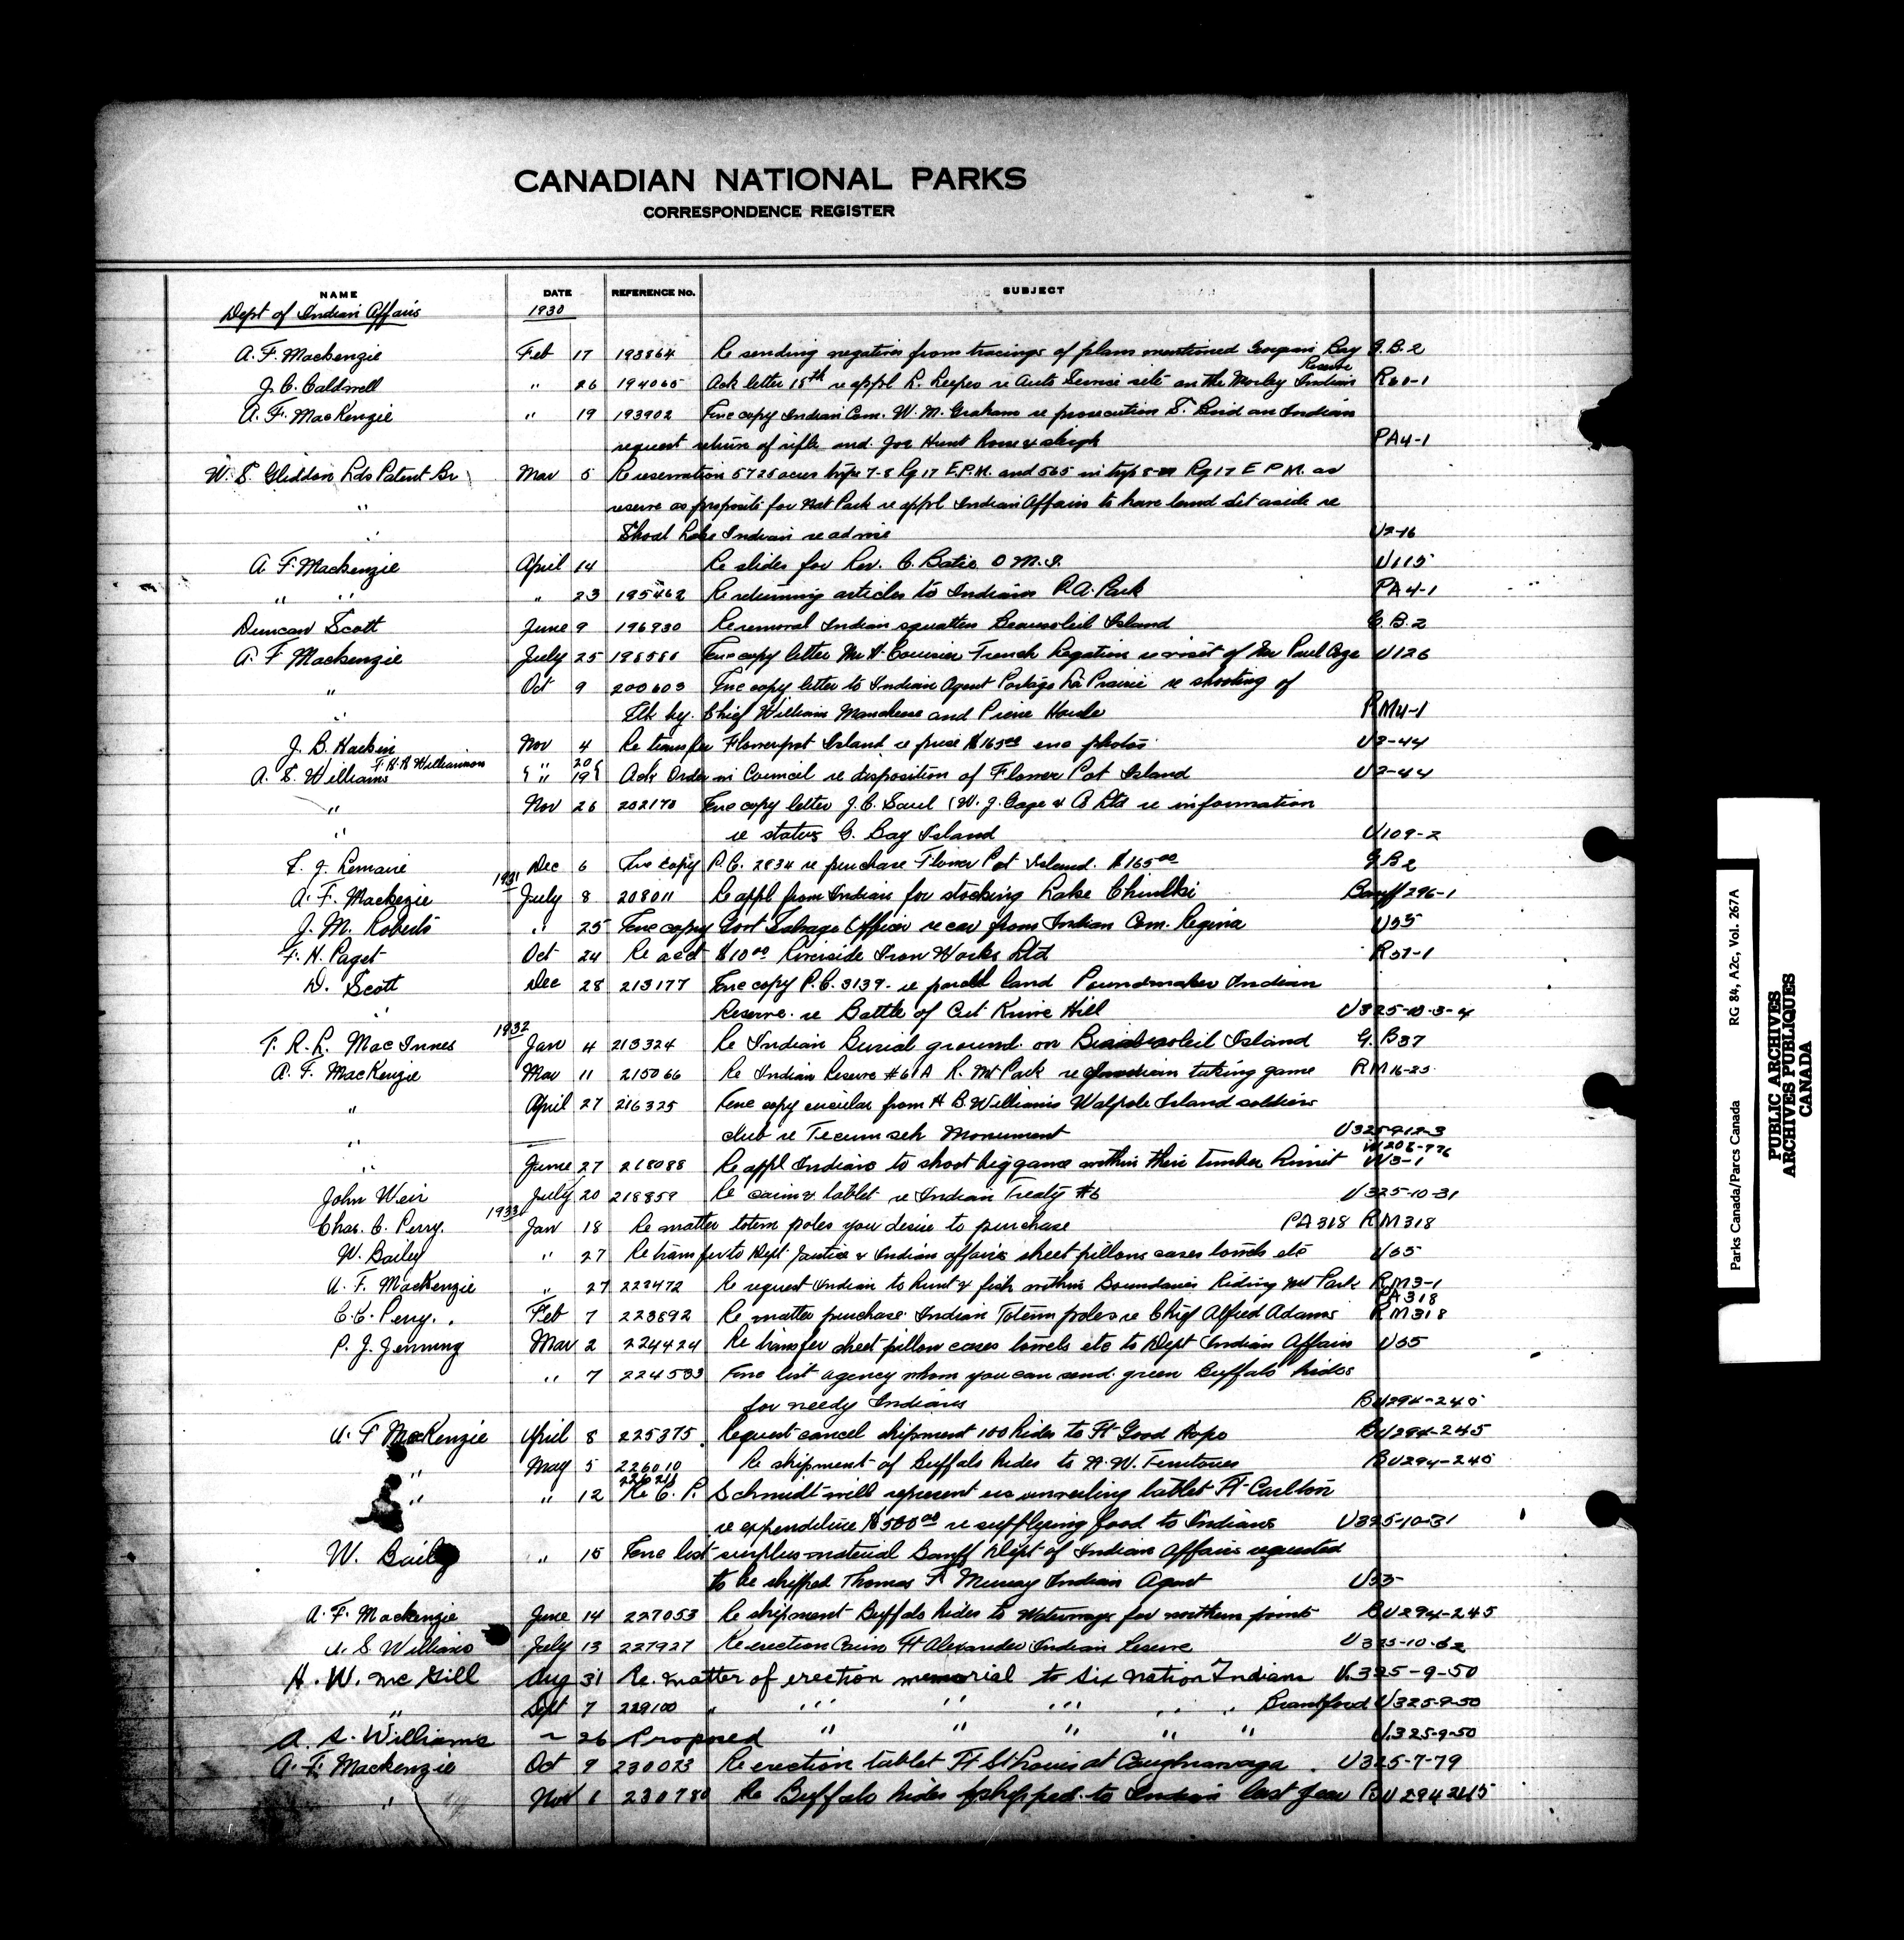 CANADIAN NATIONAL PARKS
CORRESPONDENCE REGISTER
NAME DATE REFERENCE No. SUBJECT
Dept of Indian Affairs 1930
A. F. Mackenzie Feb 17 193864 Re sending negatives from tracings of plans mentioned Georgian Bay G.B.2
Reserve
J. C. Caldwell " 26 194065 Ack letter 15th re appl L. re Auto Service site on the Morley Indian R60-1
A. F. MacKenzie " 19 193902 Enc copy Indian Com. W. M. Graham re prosecution an Indian
request return of rifle and Joe Hunt & sleigh PA4-1
W. S. Gliddon Lds Patent Br Mar 5 Re reservation 5725 acres 7-8 Rg 17 E.P.M. and 565 in Rg 17 E P M. as
" reserve as for Nat Park re appl Indian Affairs to have land set aside re
" Shoal Lake Indian re U2-16
A F Mackenzie April 14 Re slides for Rev. O M. I. U115
" " " 23 195462 Re returning articles to Indians P.A. Park PA4-1
Duncan Scott June 9 196930 Re removal Indian squatters Beausoleil Island G.B.2
A. F Mackenzie July 25 Enc copy letter French Legation re visit of Mr Paul U126
" Oct 9 200603 Enc copy letter to Indian Agent Portage La Prairie re shooting of
" Elk by Chief William and RM4-1
J. B. Harkin Nov 4 Re transfer Flowerpot Island re price $165.00 enc photos U2-44
T. R. L. Williamson " 20
A. S. Williams " 19 Ack Order in Council re disposition of Flower Pot Island U2-44
" Nov 26 202170 Enc copy letter J. C. Saul (W. J. Gage & Co Ltd re information
" re status G. Bay Island U109-2
Dec 6 Enc copy P.C. 2834 re purchase Flower Pot Island. $165.00 G B 2
1931
A. F. Mackenzie July 8 208011 Re appl from Indian for stocking Lake Banff 296-1
J. M. Roberts " 25 Enc copy Govt Salvage Officer re car from Indian Com. Regina U55
F. H. Paget Oct 24 Re acct $10.00 Riverside Iron Works Ltd
D. Scott Dec 28 213177 Enc copy P.C. 3139. re parcel land Poundmaker Indian
" Reserve re Battle of Cut Knife Hill U325-10-3-4
1932
T. R. L. Mac Innes Jan 4 213324 Re Indian Burial ground on Beausoleil Island G. B 37
A. F. MacKenzie Mar 11 215066 Re Indian Reserve #61A R. Mt Park re taking game RM16-23
" April 27 216325 Enc copy circular from H B. Williams Walpole Island soldiers
" club re Tecumseh Monument U325-9-12-3
" June 27 218088 Re appl Indians to shoot big game within their timber limit W3-1
John Weir July 20 218859 Re cairn & tablet re Indian Treaty #6 U325-10-31
1933
Chas. C. Perry. Jan 18 Re matter totem poles you desire to purchase PA318 RM318
W. Bailey " 27 Re transfer to Dept Justice & Indian affairs sheet pillows cases towels etc U55
A. F. MacKenzie " 27 223472 Re request Indian to hunt & fish within Boundaries Riding Mt Park RM3-1
PA318
C. C. Perry. Feb 7 223892 Re matter purchase Indian Totem poles re Chief Alfred Adams RM318
P. J. Jennings Mar 2 224424 Re transfer sheet pillow cases towels etc to Dept Indian Affairs U55
" 7 224533 Enc list agency whom you can send green Buffalo hides
for needy Indians BU294-245
A. F MacKenzie April 8 225375 Request cancel shipment 100 hides to Ft Good Hope BU294-245
" May 5 226010 Re shipment of Buffalo hides to N. W. Territories BU294-245
226211
" " 12 Re C. P. Schmidt will represent us unveiling tablet Ft Carlton
re expenditure $500.00 re supplying food to Indians U325-10-31
W. Bailey " 15 Enc list surplus material Banff Dept of Indian Affairs requested
to be shipped Thomas F. Murray Indian Agent U55
A. F. Mackenzie June 14 227053 Re shipment Buffalo hides to Waterways for northern points BU294-245
A. S Williams July 13 227927 Re erection Cairn Ft Alexander Indian Reserve U325-10-62
H. W. Mc Gill Aug 31 Re. matter of erection memorial to six nation Indians U.325-9-50
" Sept 7 229100 " " " " " " Brantford U325-9-50
A. S. Williams ~ 26 Proposed " " " " " U.325-9-50
A. F. Mackenzie Oct 9 230023 Re erection tablet Ft St Louis at Caughnawaga. U325-7-79
" Nov 1 230780 Re Buffalo hides shipped to Indian last year BU294245
Parks Canada/Parcs Canada RG 84, A2c, Vol. 267A
PUBLIC ARCHIVES
ARCHIVES PUBLIQUES
CANADA